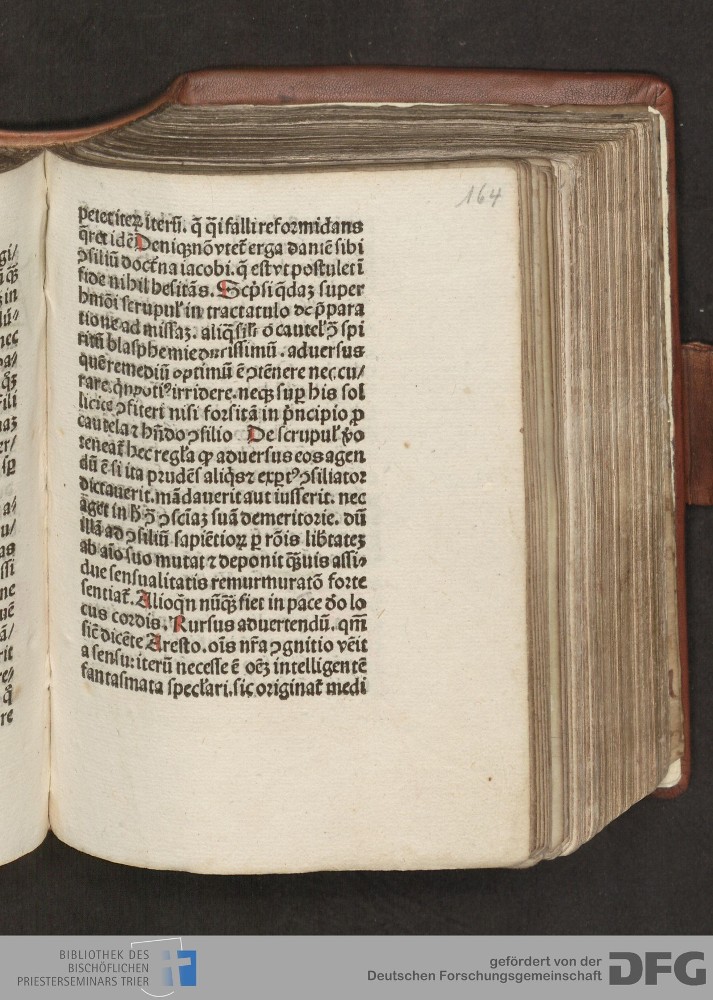 164
petet iteꝝ iterū. q̄ q̄i falli reformidans
q̄ret idē Deniqꝫ nō vtet᷑ erga dantē sibi
ꝯsiliū doct͛na iacobi. q̄ est vt postulet ī
fide nihil hesitās. Scp̄si q̄daꝫ super
hmōi scrupuł in tractatulo de p̄para
tione ad missaꝫ. aliq̄ sił'r
spi
ritū blasphemie
. aduersus
quē remediū optimū ē ꝯtēnere nec cu/
rare.
irridere. neqꝫ suꝑ his sol
licite ꝯfiteri nisi forsitā in p̄ncipio ꝓ
cautela ⁊ hn̄do ꝯsilio De scrupuł v̊o
teneat᷑ hec regl̓a ꝙ aduersus eos agen
dū ē si ita prudēs aliq̓s ⁊ exꝑtꝰ ꝯsiliator
dictauerit. mādauerit aut iusserit. nec
aget in h̄ ꝯ̄ ꝯsciaꝫ suā demeritorie. dū
illā ad ꝯsiliū sapiētioꝝ ꝑ rōis lib̄tateꝫ
ab aīo suo mutat ⁊ deponit qͣꝫuis assi⸗
due sensualitatis remurmuratō forte
sentiat᷑. Alioqͥn nūqͣꝫ fiet in pace dō lo
cus cordis. Rursus aduertendū. qm̄
sic̄ dicēte Aresto. oīs nr̄a ꝯgnitio vēit
a sensu: iterū necesse ē oēꝫ intelligentē
fantasmata specl̓ari. sic originat᷑ medi
BIBLIOTHEK DES
BISCHÖFLICHEN
PRIESTERSEMINARS TRIER
gefördert von der
Deutschen Forschungsgemeinschaft
DFG